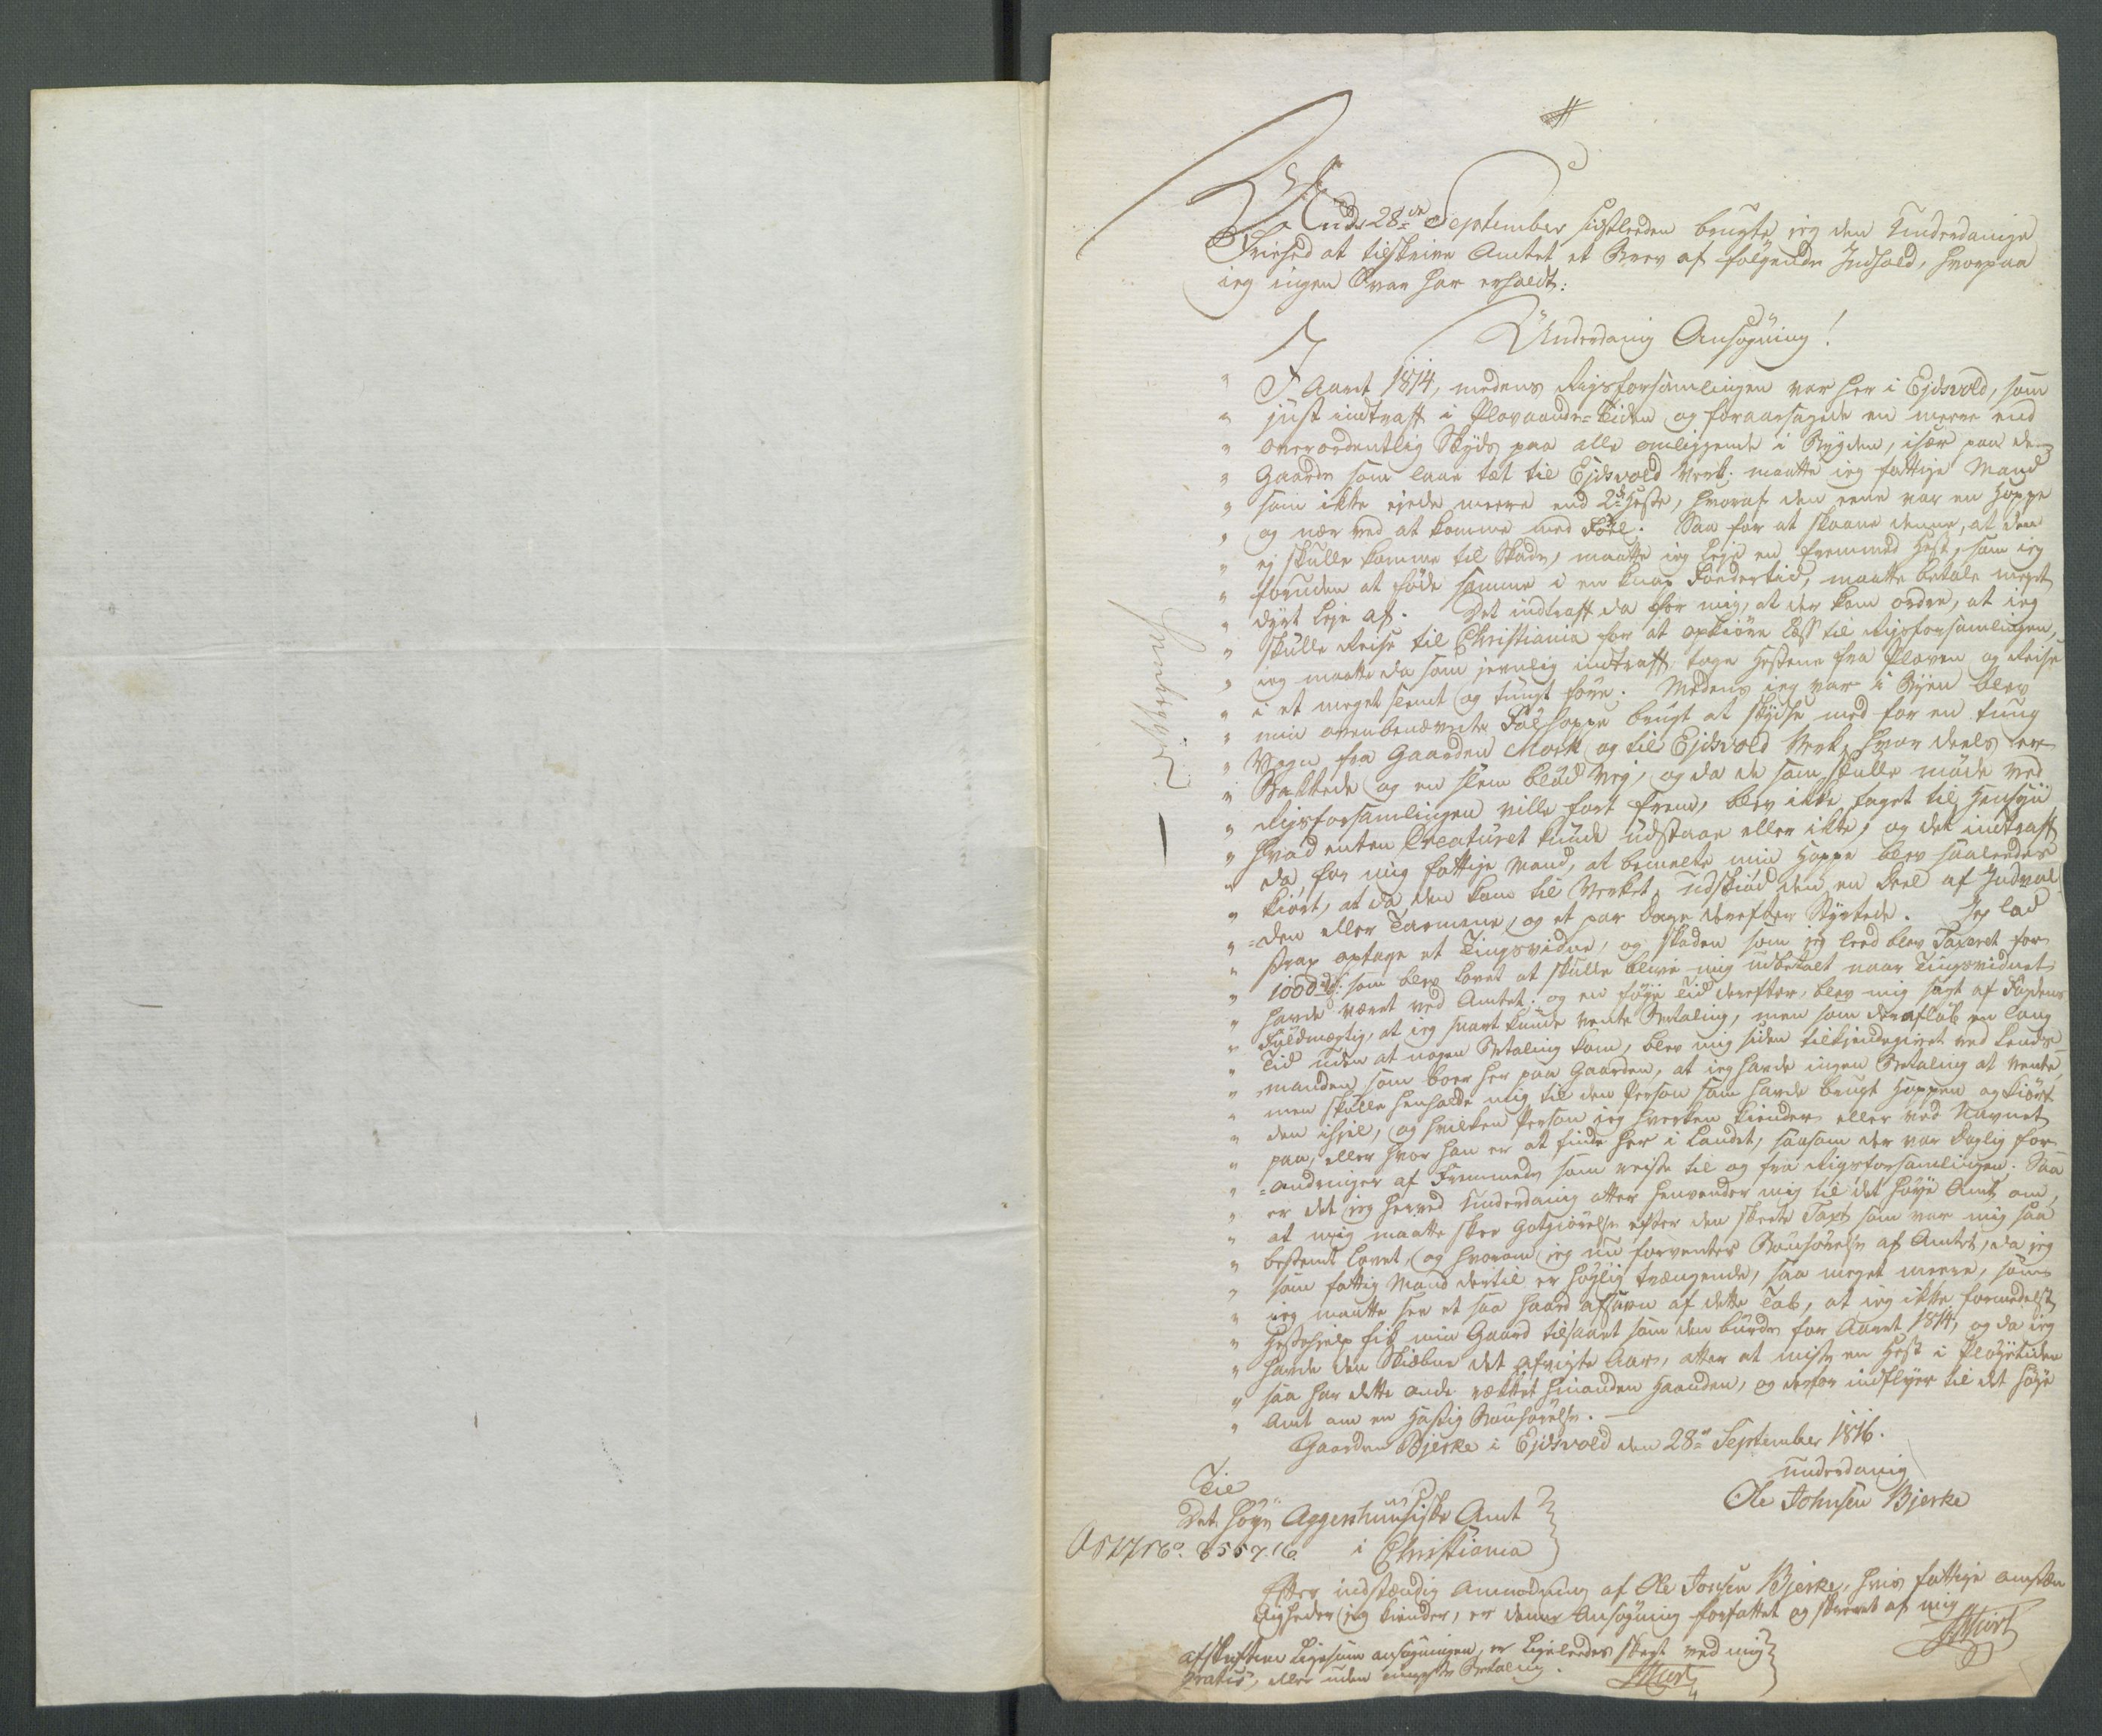 Under 28de September sidstleeden brugte jeg den Underdanige
Friehed at tilskrive Amtet et Brev af følgende Indhold, hvorpaa
ieg ingen Svar har erholdt:
Underdanig Ansøgning!
" I Aaret 1814, medens Rigsforsamlingen var her i Ejdsvold, som
" just indtraff i Plovaande-Tiden og foraarsagede en meere end
" overordentlig Skyds paa alle omliggende i Bygden, især paa de
" Gaarde som laae tæt til Ejdsvold Verk: maatte ieg fattige Mand
" som ikke ejede meere end 2de Heste, hvoraf den eene var en Hoppe
" og nær ved at komme med Føll. Saa for at skaane denne, at den
" ej skulle komme til Skade, maatte ieg leje en fremmed Hest, som ieg
" foruden at føde samme i en knap Foedertid, maatte betale meget
" dyrt Leje af. Det indtraff da for mig, at der kom ordre, at ieg
" skulle Reise til Christiania for at opkiøre Læss til Rigsforsamlingen,
" ieg maatte da som jevnlig indtraff tage Hestene fra Ploven og Reise
" i et meget slemt og tungt føre. Medens ieg var i Byen blev
" min ovenbenævnte Følhoppe brugt at skydse med for en tung
" Vogn fra Gaarden Moe og til Ejdsvold Verk, hvor deels er
" Bakkede og en slem bløed Vej, og da de som skulle møde ved
" Rigsforsamlingen ville fort frem, blev ikke taget til Hensyn
" hvad enten Creaturet kunde udstaae eller ikke, og det indtraff
" da, for mig fattige Mand, at bemelte min Hoppe blev saaleedes
" kiørt, at da den kom til Verket, udskiød den en Deel af Indvol-
" =den eller Tarmene, og et par Dage derefter Styrtede. Jeg lod
" strax optage et Tingsvidne, og skaden som jeg leed blev Taxeret for
" 1000 rd: som blev lovet at skulle blive mig udbetalt naar Tingsvidnet
" havde været ved Amtet: og en føye Tid derefter, blev mig sagt af Fogdens
" Fuldmægtig, at ieg snart kunde vente Betaling, men som der afløb en lang
" Tid uden at nogen Betaling kom, blev mig siden tilkiendegivet ved Lends-
" =manden som boer her paa Gaarden, at ieg havde ingen Betaling at vente,
" men skulle henholde mig til den Person som havde brugt Hoppen og kiørt
" den ihjel, og hvilken Person jeg hverken kiender eller ved Navnet
" paa, eller hvor han er at finde her i Landet, saasom der var Daglig for-
" =andringer af Fremmede som reiste til og fra Rigsforsamlingen. Saa
" er det jeg herved Underdanig atter henvender mig til det høye Amt om,
" at mig maatte skee Gotgiørelse efter den skeete Taxt som var mig saa
" bestemt lovet, og hvorom jeg nu forventer Bønhørelse af Amtet, da jeg
" som fattig Mand dertil er høylig trængende, saa meget meere, som
" ieg maatte see et saa haard afsavn af dette Tab, at ieg ikke formedelst
" Hestehielp fik min Gaard tilsaaet som den burde for Aaret 1814, og da ieg
" havde den Skiæbne det afvigte Aar, atter at miste en Hest i Plogetiden
" saa har dette onde rækket hinanden Haanden, og derfor indflyer til det høye
" Amt om en Hastig Bønhørelse.
Gaarden Bjerke i Ejdsvold den 28de September 1816.
underdanig
Ole Johnsen Bjerke
Til
Det høye Aggershuusiske Amt
i Christiania
3557.16
Efter indstændig Anmodning af Ole Jonsen Bjerke, hvis fattige omstæn
digheder jeg kiender, er denne Ansøgning forfattet og skrevet af mig
afskriften ligesom ansøgningen, er ligeleedes skeet ved mig
gratis, eller uden mindste Betaling.